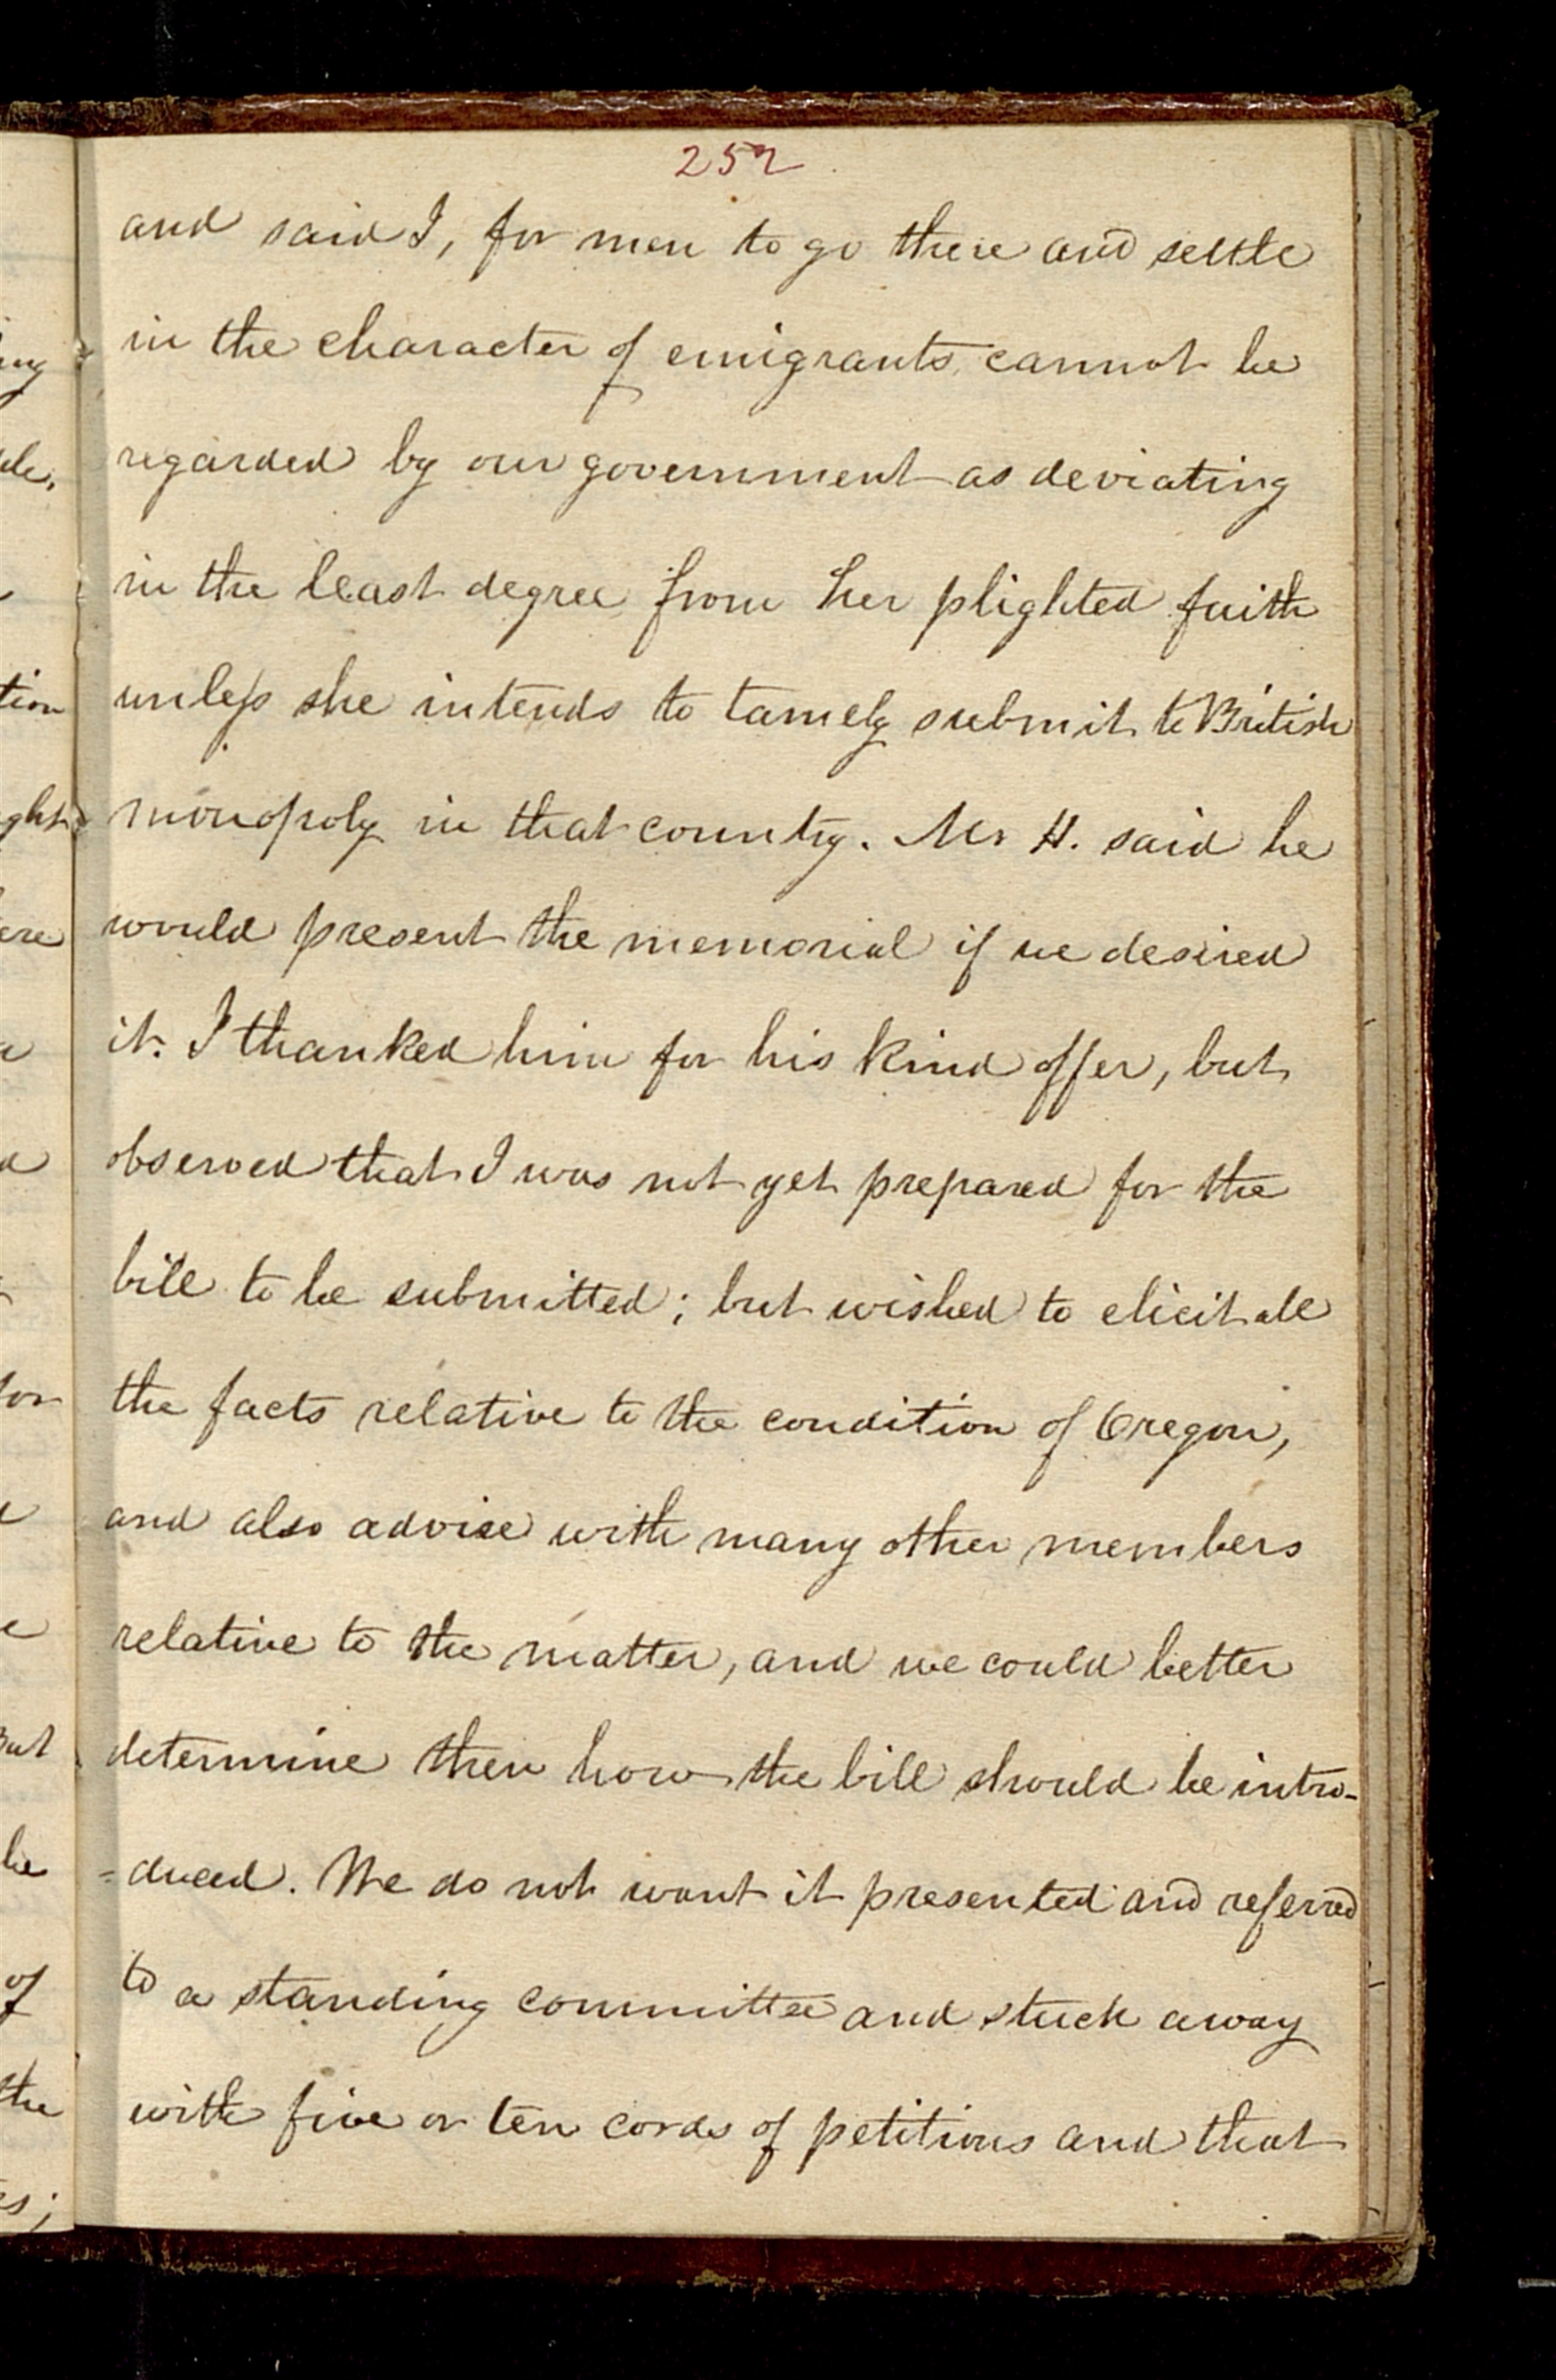 252
and said I, for men to go there and settle
in the character of emigrants, cannot be
regarded by our government as deviating
in the least degree from her plighted faith
unless she intends to tamely submit to British
monopoly in that country. Mr H. said he
would present the memorial if we desired
it. I thanked him for his kind offer, but
observed that I was not yet prepared for the
bill to be submitted; but wished to elicit all
the facts relative to the condition of Oregon,
and also advise with many other members
relative to the matter, and we could better
determine then how the bill should be intro-
=duced. We do not want it presented and referred
to a standing committee and stuck away
with five or ten cords of petitions and that